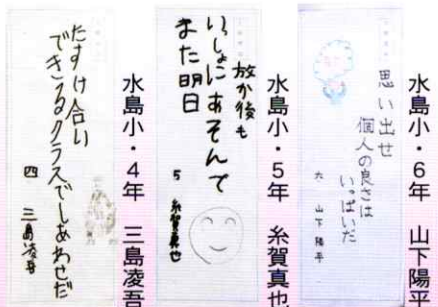 水島小・6年 山下陽平
思い出せ
個人の良さは
いっぱいだ
六 山下陽平
水島小・5年 糸賀真也
放か後も
いっしょにあそんで
また明日
5 糸賀真也
水島小・4年 三島凌吾
たすけ合い
できるクラスでしあわせだ
四 三島凌吾